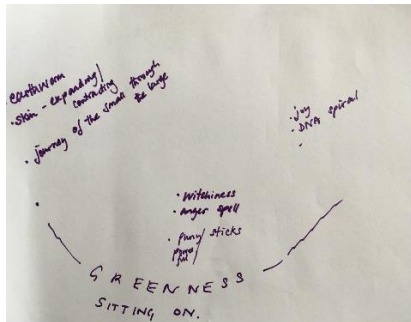 earthworm
• skin - expanding/
contracting
• journey of the small through
the large
• joy
• DNA spiral
•
• witchiness
• anger spell
• puny/ sticks
GREENNESS
SITTING ON.